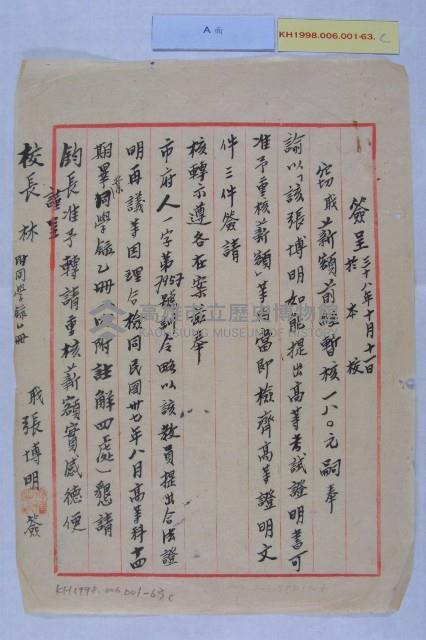 A面
KH1998.006.001-63.
C
簽呈 三十八年十月十一日
於本校
竊職薪額前經暫核一八〇元嗣奉
諭以「該張博明如能提出高等考試證明書可
准予重核薪額」等因當即檢齊高等證明文
件三件簽請
核轉示遵各在案茲奉
市府人一字第7957號訓令略以該教員提出合法證
明再議等因理合檢同民國卅七年八月高等科十四
期畢業同學錄乙冊（內附註解四處）懇請
鈞長准予轉請重核薪額實感德便
謹呈
校長林 附同學錄乙冊
職張博明簽
高雄市立歷史博物館
KAOHSIUNG MUSEUM OF HISTORY
KH1998.006.001-63c